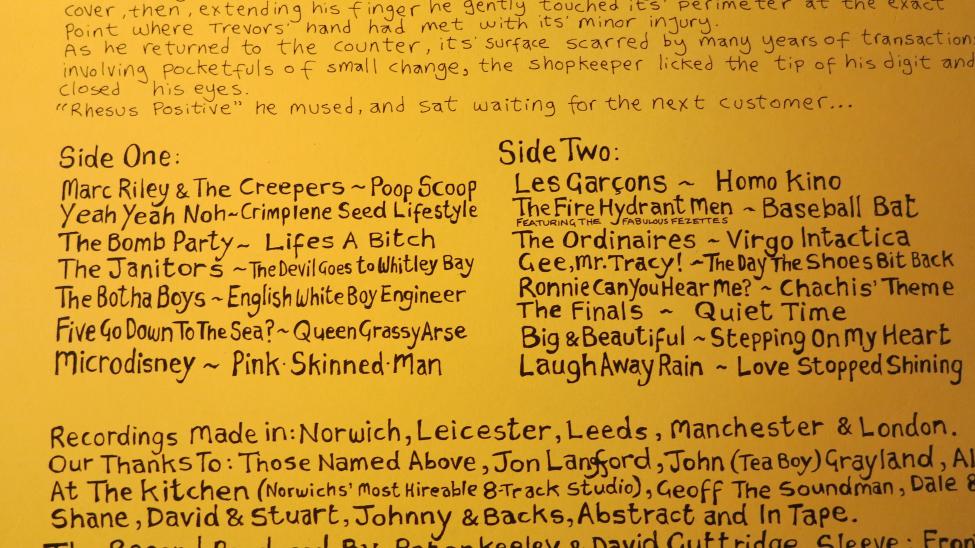 cover, then, extending his finger he gently touched it's perimeter at the exact
Point where Trevors' hand had met with its' minor injury.
As he returned to the counter, it's surface scarred by many years of transaction
involving Pocketfuls of small change, the shopkeeper licked the tip of his digit and
closed his eyes.
"Rhesus Positive" he mused, and sat waiting for the next customer...
Side One:
Marc Riley & The Creepers ~ Poop Scoop
Yeah Yeah Noh ~ Crimplene Seed Lifestyle
The Bomb Party ~ Lifes A Bitch
The Janitors ~ The Devil Goes to Whitley Bay
The Botha Boys ~ English White Boy Engineer
Five Go Down To The Sea? ~ Queen Grassy Arse
Microdisney ~ Pink·Skinned·Man
Side Two:
Les Garçons ~ Homo Kino
The Fire Hydrant Men ~ Baseball Bat
FEATURING THE FABULOUS FEZETTES
The Ordinaires ~ Virgo Intactica
Gee, Mr. Tracy! ~ The Day The Shoes Bit Back
Ronnie Can You Hear Me? ~ Chachis' Theme
The Finals ~ Quiet Time
Big & Beautiful ~ Stepping On My Heart
Laugh Away Rain ~ Love Stopped Shining
Recordings Made in: Norwich, Leicester, Leeds, Manchester & London.
Our Thanks To: Those Named Above, Jon Langford, John (Tea Boy) Grayland,
At The Kitchen (Norwichs' Most Hireable 8-Track Studio), Geoff The Soundman, Dale &
Shane, David & Stuart, Johnny & Backs, Abstract and In Tape.
David Guttridge. Sleeve: